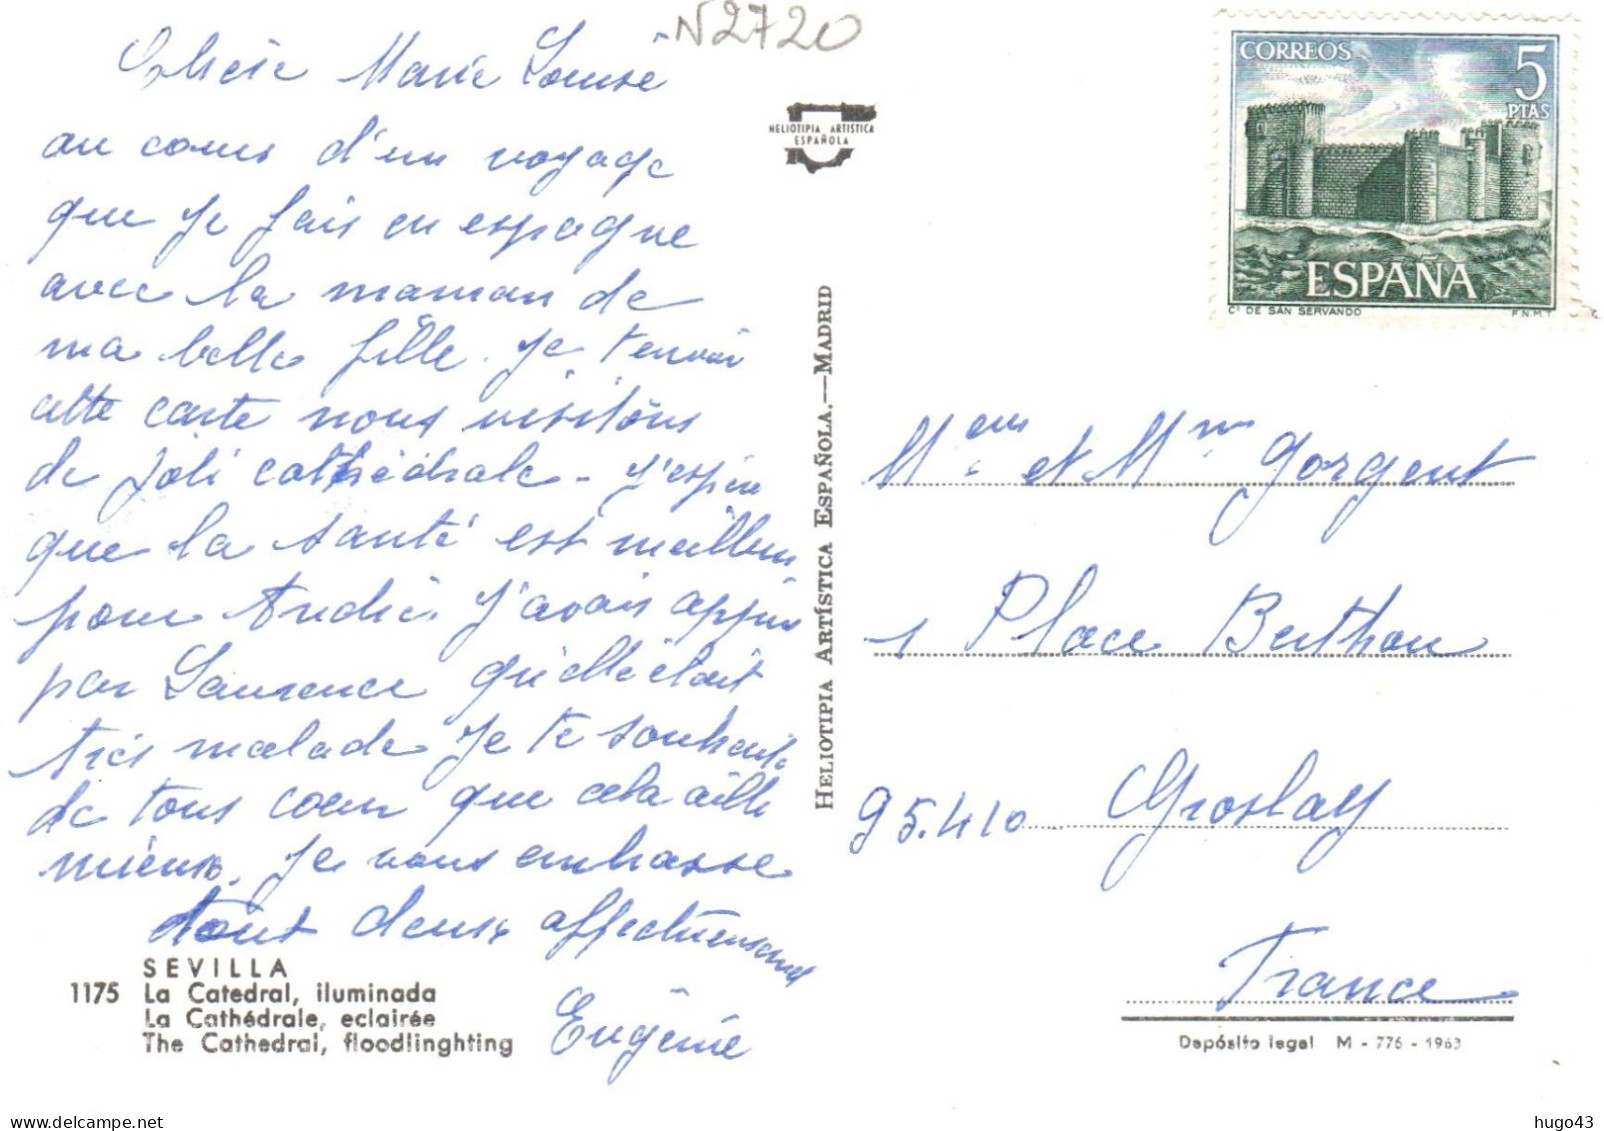 N2720
Chère Marie Louise
au cours d'un voyage
que je fais en espagne
avec la maman de
ma belle fille. Je t'envoie
cette carte nous visitons
de joli cathédrale - J'espère
que la santé est meilleure
pour André. J'avais appris
par Laurence qu'elle était
très malade je te souhaite
de tous coeur que cela aille
mieux. Je vous embrasse
tout deux affectueusement
Eugénie
SEVILLA
1175 La Catedral, iluminada
La Cathédrale, eclairée
The Cathedral, floodlinghting
HELIOTIPIA ARTISTICA
ESPAÑOLA
HELIOTIPIA ARTÍSTICA ESPAÑOLA.—MADRID
CORREOS
5
PTAS
ESPAÑA
Cº DE SAN SERVANDO F.N.M.T.
et Mme Gorgent
1 Place Berthou
95.410 Groslay
France
Depósito legal M - 776 - 1963
hugo43